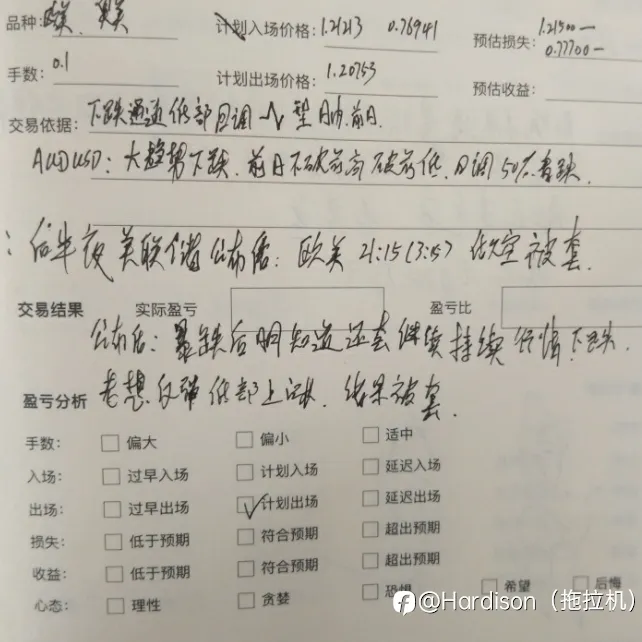 品种: 欧美、澳美 计划入场价格: 1.21213 0.76941 预估损失: 1.21500一 0.77700一
手数: 0.1 计划出场价格: 1.20753 预估收益:
交易依据: 下跌通道低部回调 型
AUDUSD: 大趋势下跌. 前日不破前高 破前低. 回调50%看跌.
: 后半夜美联储公布后: 欧美 21:15 做空被套.
交易结果 实际盈亏 盈亏比
公布后: 暴跌后明知道还会继续持续行情下跌.
盈亏分析 老想反弹低部上 结果被套.
手数: 偏大 偏小 适中
入场: 过早入场 计划入场 延迟入场
出场: 过早出场 计划出场 延迟出场
损失: 低于预期 符合预期 超出预期
收益: 低于预期 符合预期 超出预期
心态: 理性 贪婪 恐惧 希望 后悔
@Hardison（拖拉机）